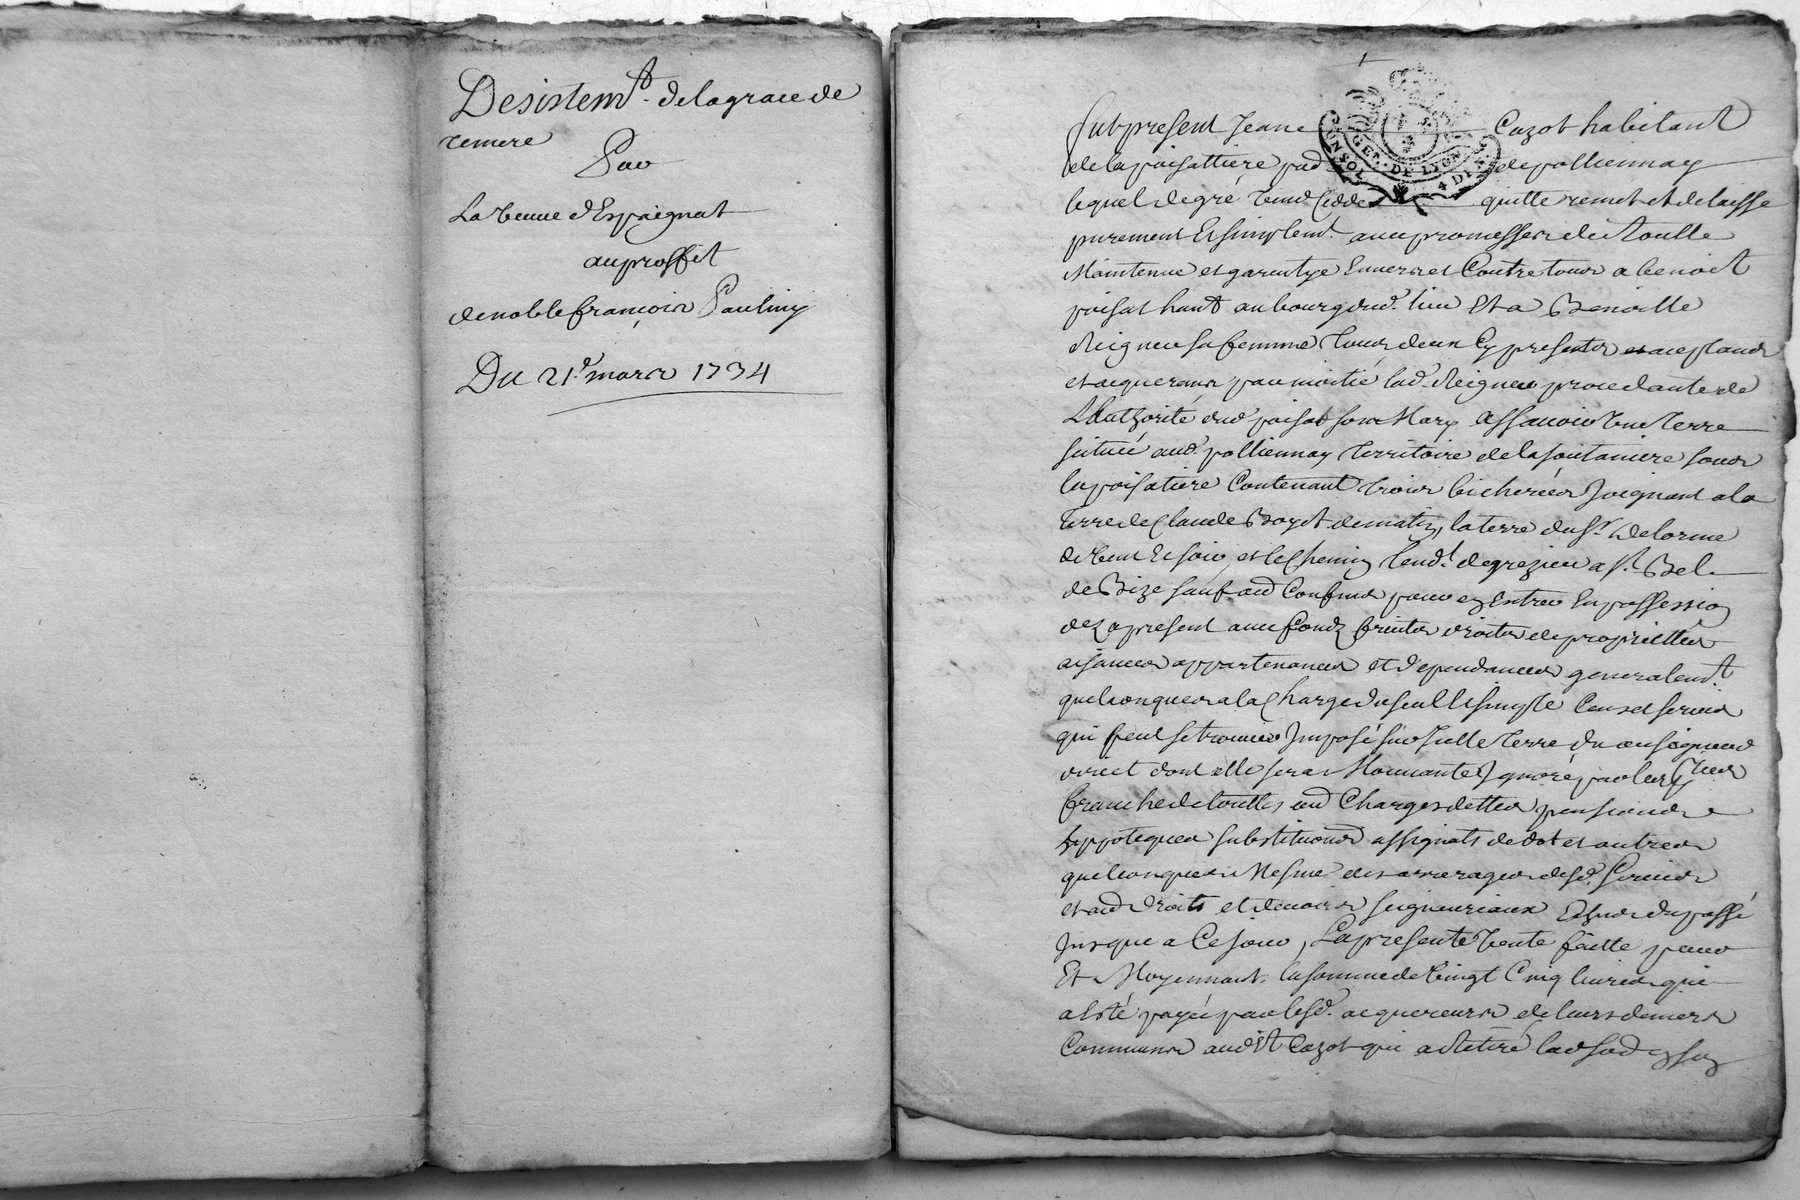 Desistem.t de la grace de
remere
Par
La veuve d'Espaignat
au proffit
de noble françois Pauliny
Du 21.e mars 1734
fut present Jean Cazot habitant
GEN. DE LYON
4 D
de la poisattiere de polliennay
lequel de gré vend cedde quitte remet et delaisse
purement et simplem.t avec promesse de
Maintenue et garentye envers et Contre tous a benoist
poisat hant au bourg dud. lieu et a Benoitte
sa femme tous deux Cy presents et aceptants
et acquereurs par moitié lad. procedante de
L'Authorité dud poisat son Mary Assavoir Une terre
scituée aud. polliennay territoire de la fontaniere sous
la poisatiere Contenant trois bicherées Joignant a la
terre de Claude de matin, la terre du s.r Delorme
de vent et soir, et le Chemin tend.t de grezieu a s.t Bel
de Bize sauf aud Confins pour en Entrer En possession
dez a present avec fondz fruits droits de proprietter
aisances appartenances et d'ependances generalem.t
quelconques a la Charge du seul et simple Cens et servis
qui peut se trouver Imposé sur icelle terre du au seigneur
direct dont elle sera Mouvante Ignoré par les
franche de touttes aud Charges dettes pensions
hypoteques substitutions assignats de dot et autres
quelconques Mesme des arrerages desd. servis
et aud droits et devoirs seigneuriaux Echus du passé
Jusque a Ce jour, La presente Vente faitte pour
Et Moyennant la somme de Vingt Cinq livres que
a Esté payée par lesd. acquereurs de leurs deniers
Communs audit Cazot qui a retiré lad